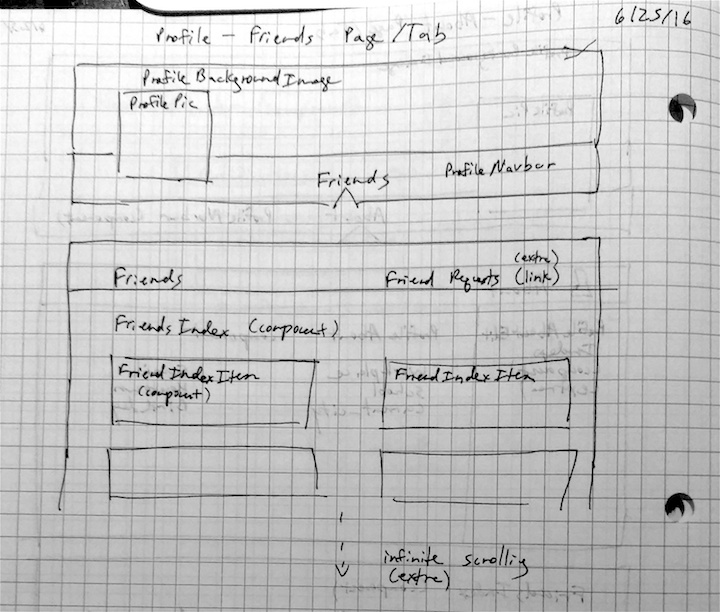 6/25/16
Profile - Friends Page/Tab
Profile Background Image
Profile Pic
Profile Navbar
Friends
(extra)
Friends
Friend Requests (link)
Friends Index (component)
Friend Index Item
(component)
Friend Index Item
infinite scrolling
(extra)